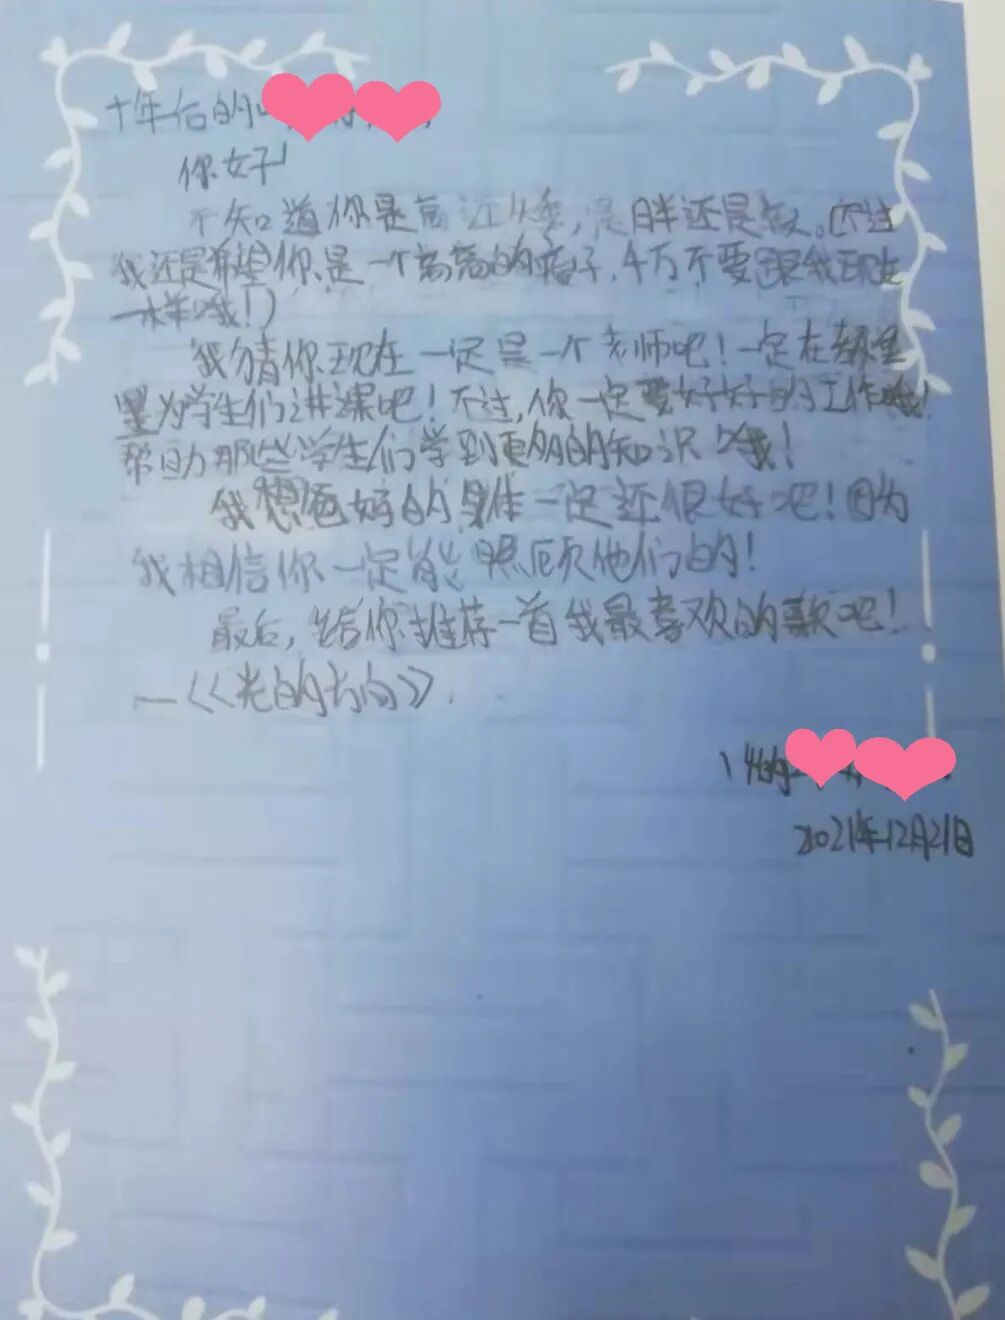 十年后的
你好!
不知道你是高还是矮,是胖还是瘦。(不过
我还是希望你是一个高高的瘦子,千万不要跟我现在
一样哦!)
我猜你现在一定是一个老师吧!一定在
为学生们讲课吧!不过,你一定要好好的工作哦!
帮助那些学生们学到更多的知识哦!
我想爸妈的身体一定还很好吧!因为
我相信你一定能照顾他们的!
最后,给你推荐一首我最喜欢的歌吧!
—《光的方向》.
2021年12月21日